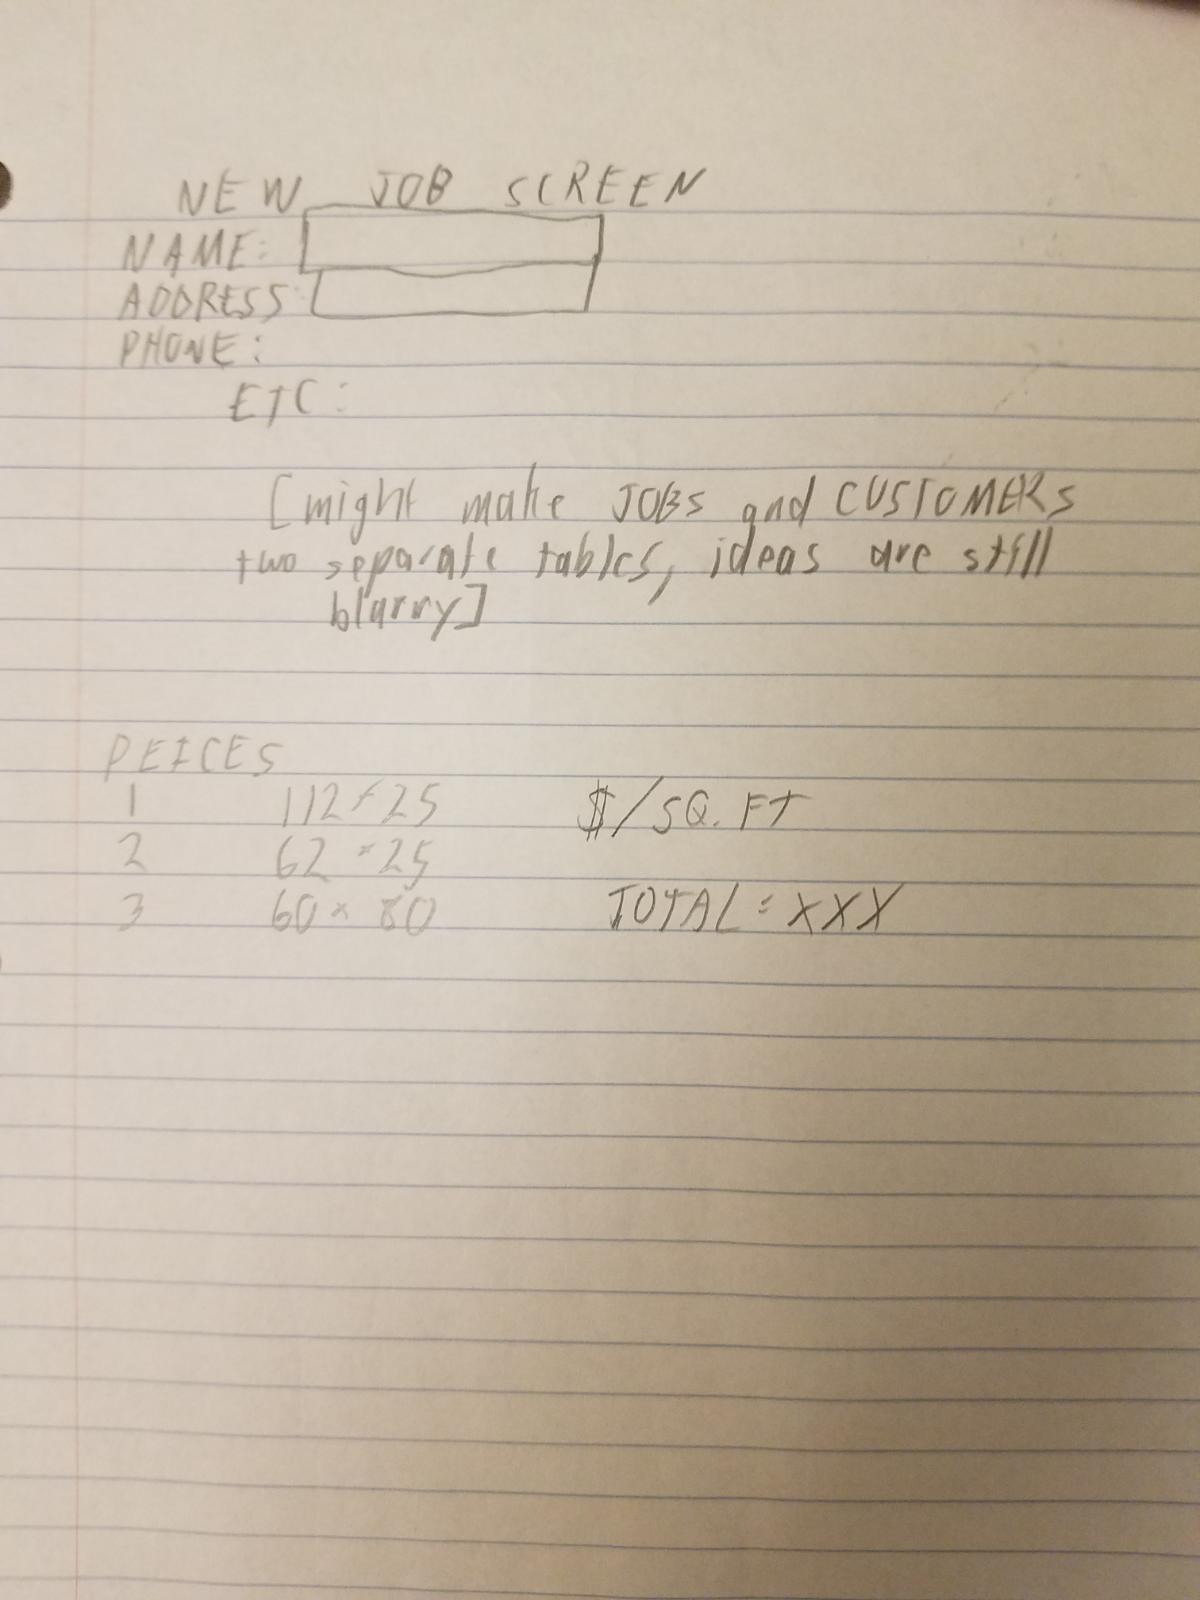 NEW JOB SCREEN
NAME:
ADDRESS:
PHONE:
ETC:
[might make JOBS and CUSTOMERS
two separate tables, ideas are still
blurry]
PEICES
1 112 x 25 $/SQ. FT
2 62 x 25
3 60 x 80 TOTAL = XXX